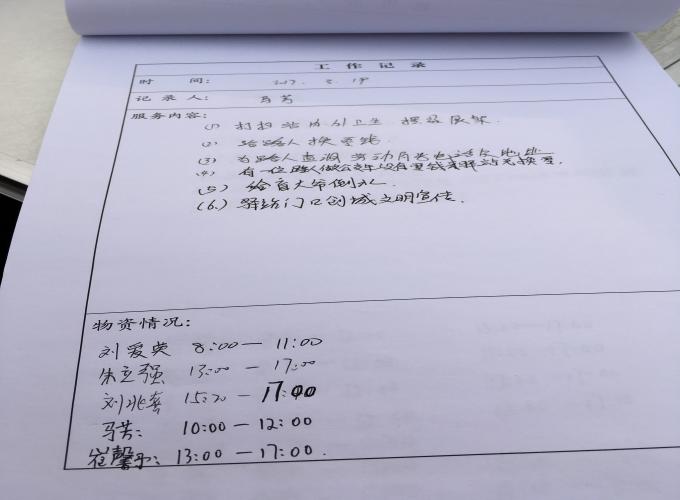 工作记录
时 间: 2017.
记录人: 马芳
服务内容:
(1) 打扫站内外卫生, 摆放展架.
(2) 给路人换零钱.
(3) 为路人查询劳动局电话及地址
(4) 有一位路人做公交车没有零钱来驿站兑换零.
(5) 给盲大爷倒水.
(6.) 驿站门口创城文明宣传.
物资情况:
刘爱英 8:00 — 11:00
朱立强 13:00 — 17:00
刘兆 15:20 — 17:00
马芳: 10:00 — 12:00
崔馨予: 13:00 — 17:00.